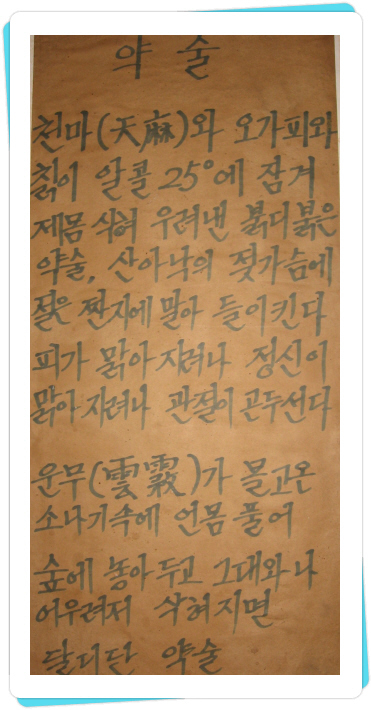 약 술
천마(天麻)와 오가피와
칡이 알콜 25°에 잠겨
제몸 삭혀 우려낸 붉디붉은
약술, 산아낙의 젖가슴에
절은 짠지에 말아 들이킨다
피가 맑아지려나 정신이
맑아지려나 관절이 곤두선다
운무(雲霧)가 몰고온
소나기속에 언몸 풀어
숲에 놓아두고 그대와나
어우려져 삭혀지면
달디단 약술